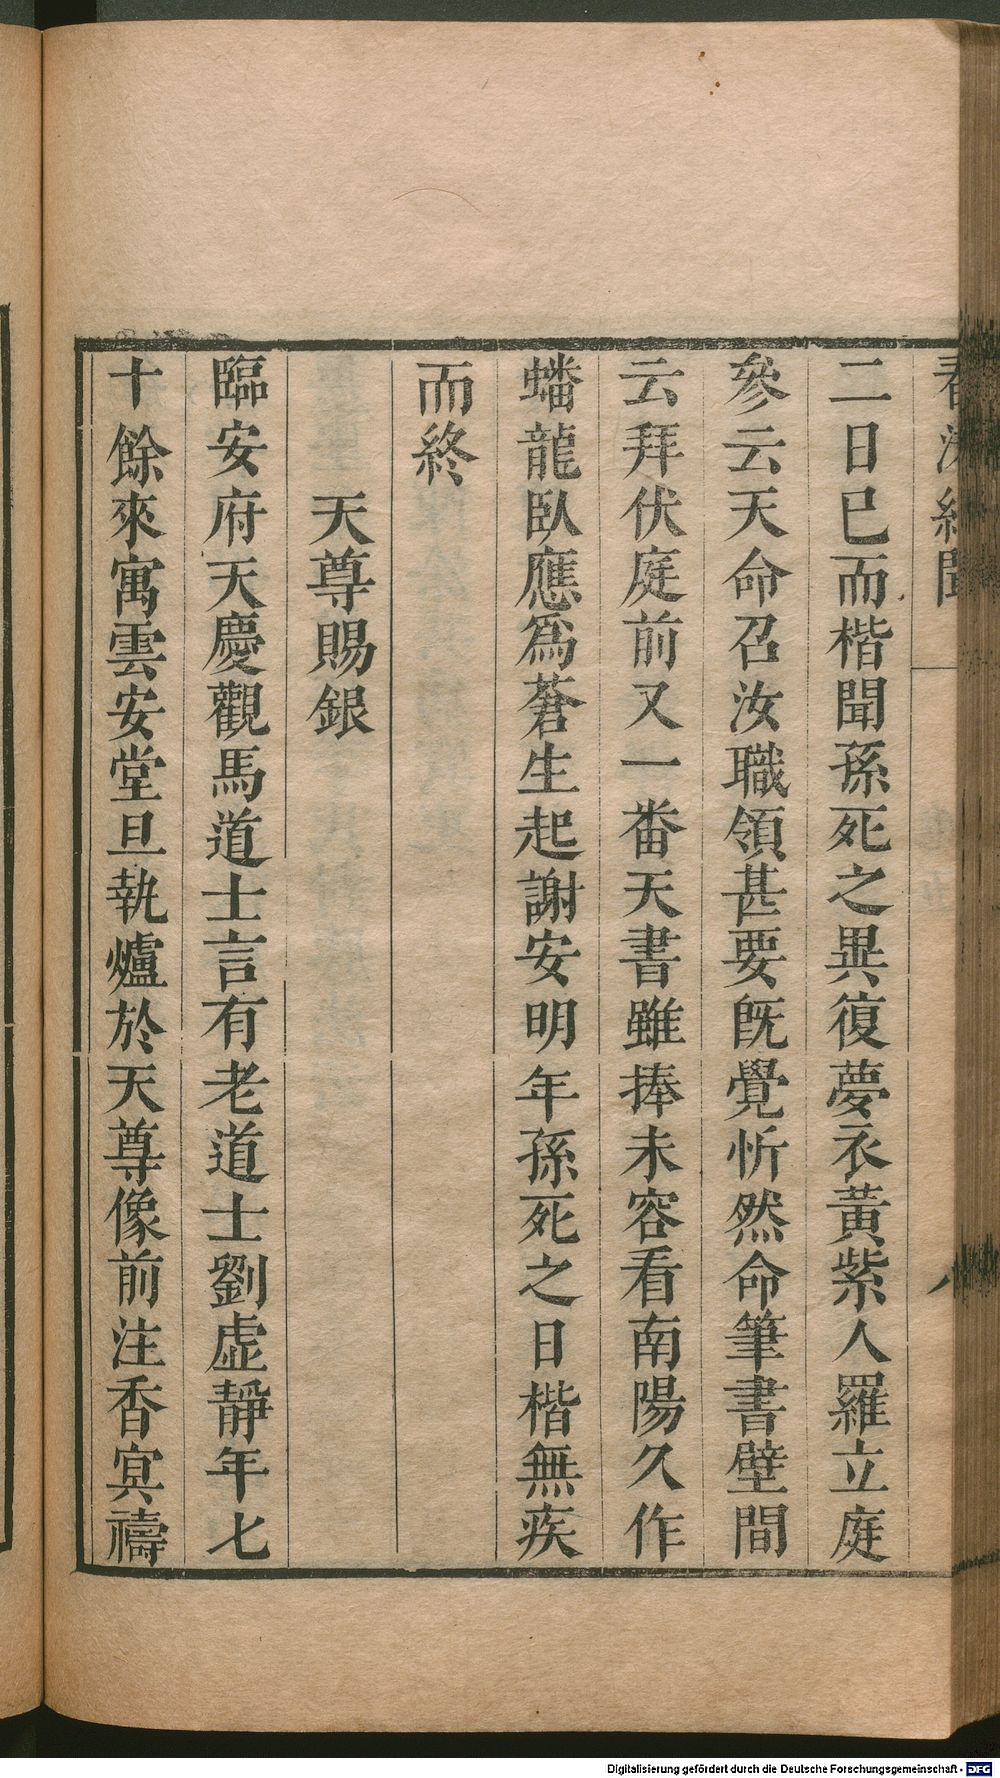 春渚紀聞
二日已而楷聞孫死之異復夢衣黃紫人羅立庭
參云天命召汝職領甚要既覺忻然命筆書壁間
云拜伏庭前又一番天書雖捧未容看南陽久作
蟠龍臥應爲蒼生起謝安明年孫死之日楷無疾
而終
天尊賜銀
臨安府天慶觀馬道士言有老道士劉虛靜年七
十餘來寓雲安堂旦執爐於天尊像前注香冥禱
Digitalisierung gefördert durch die Deutsche Forschungsgemeinschaft - DFG